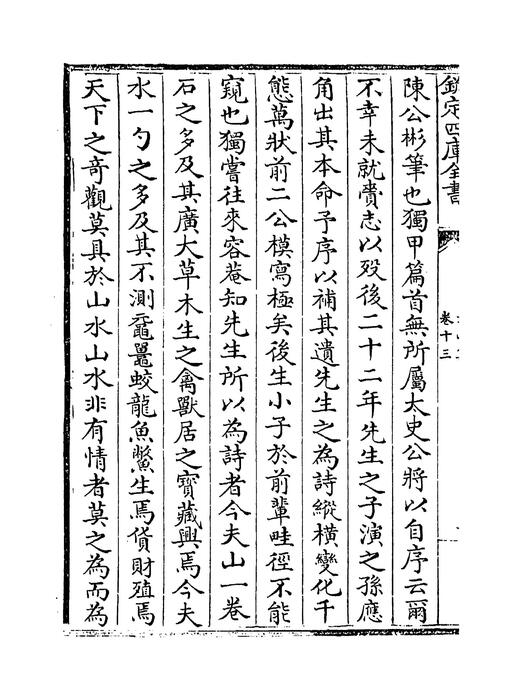 欽定四庫全書
卷十三
陳公彬筆也獨甲篇首無所屬太史公將以自序云爾
不幸未就賫志以歿後二十二年先生之子演之孫應
角出其本命予序以補其遺先生之為詩縱横變化千
態萬狀前二公模寫極矣後生小子於前輩畦徑不能
窺也獨嘗往來容菴知先生所以為詩者今夫山一卷
石之多及其廣大草木生之禽獸居之寶藏興焉今夫
水一勺之多及其不測黿鼉蛟龍魚鱉生焉貨財殖焉
天下之奇觀莫具於山水山水非有情者莫之為而為